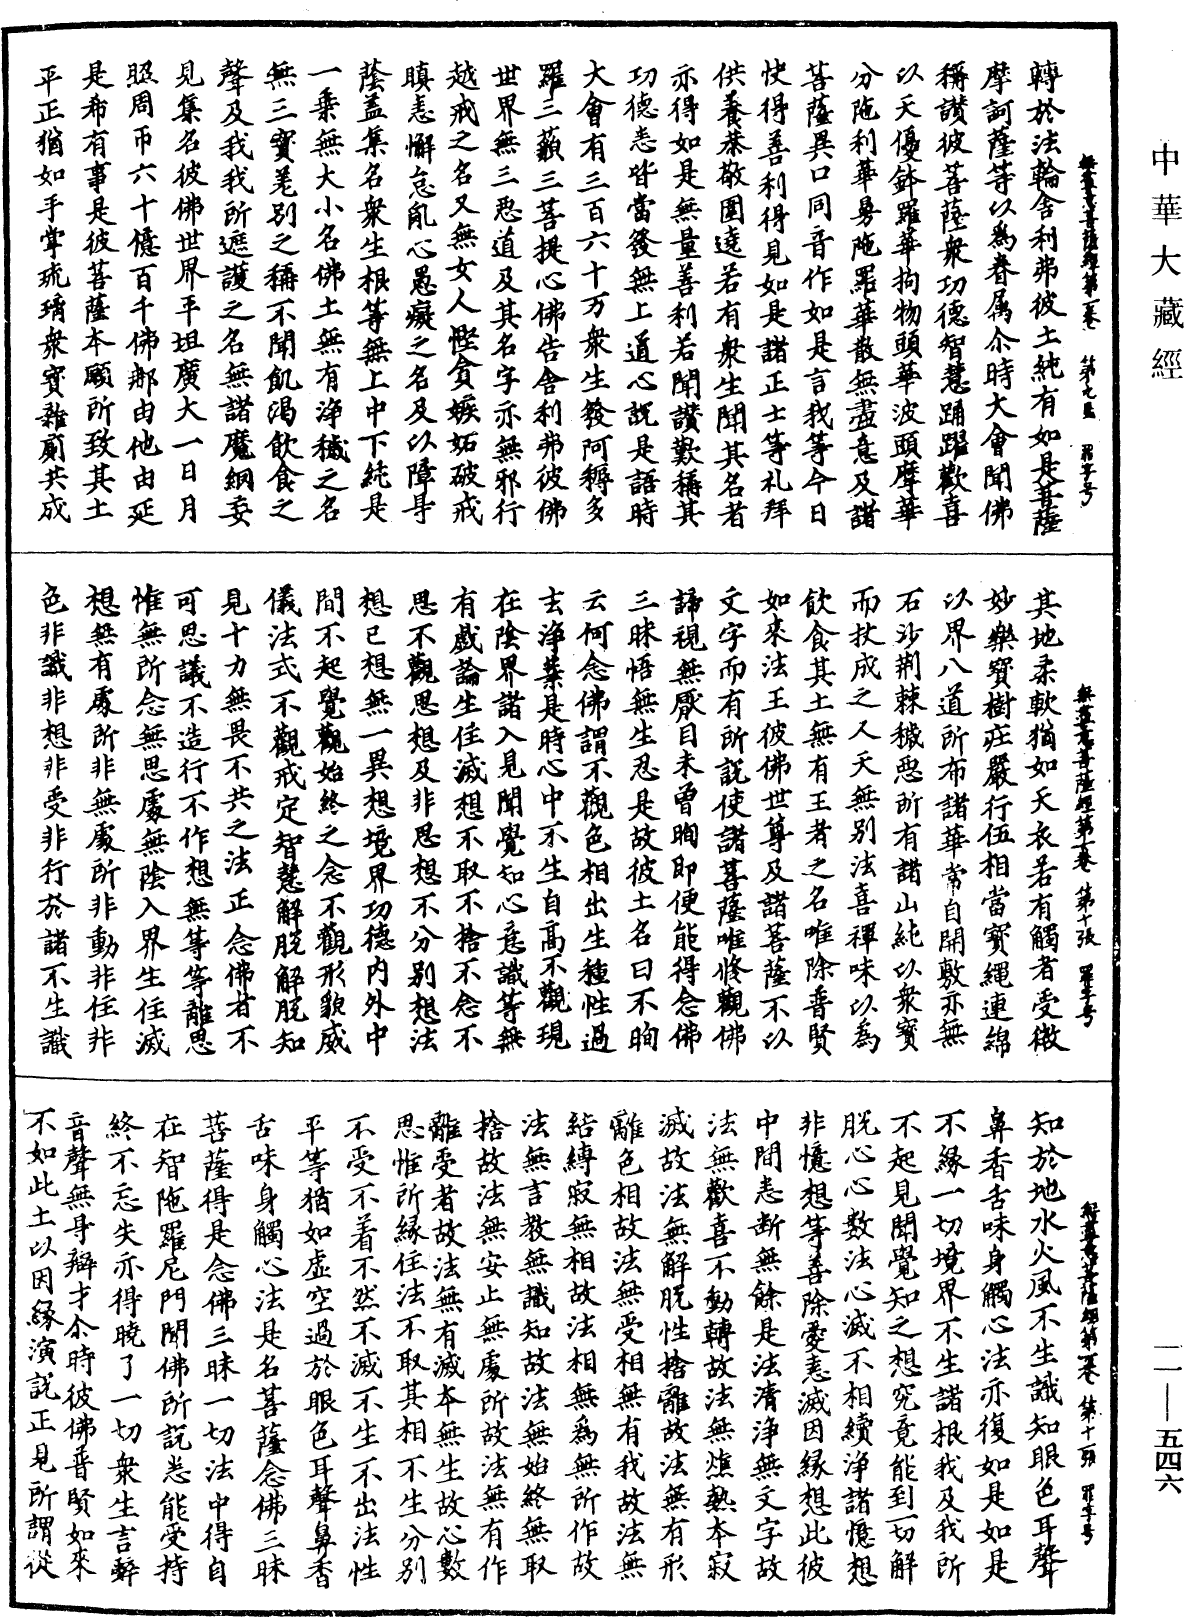 中華大藏經
轉於法輪舍利弗彼土純有如是菩薩
摩訶薩等以為眷屬尒時大會聞佛
稱讚彼菩薩衆功德智慧踊躍歡喜
以天優鉢羅華拘物頭華波頭摩華
分陁利華曼陁羅華散無盡意及諸
菩薩異口同音作如是言我等今日
快得善利得見如是諸正士等礼拜
供養恭敬圍遶若有衆生聞其名者
亦得如是無量善利若聞讚歎稱其
功德悉皆當發無上道心說是語時
大會有三百六十万衆生發阿耨多
羅三藐三菩提心佛告舍利弗彼佛
世界無三惡道及其名字亦無邪行
越戒之名又無女人慳貪嫉妬破戒
瞋恚懈怠亂心愚癡之名及以障㝵
蔭蓋集名衆生根等無上中下純是
一乘無大小名佛土無有淨穢之名
無三寶差別之稱不聞飢渴飲食之
聲及我我所遮護之名無諸魔網妄
見集名彼佛世界平坦廣大一日月
照周帀六十億百千佛那由他由延
是希有事是彼菩薩本願所致其土
平正猶如手掌琉璃衆寶雜廁共成
無盡意菩薩經第一卷 第十張 羽字号
其地柔軟猶如天衣若有觸者受微
妙樂寶樹莊嚴行伍相當寶繩連綿
以界八道所布諸華常自開敷亦無
石沙荆棘穢惡所有諸山純以衆寶
而挍成之人天無別法喜禪味以為
飲食其土無有王者之名唯除普賢
如來法王彼佛世尊及諸菩薩不以
文字而有所說使諸菩薩唯修觀佛
諦視無厭目未曾眴即便能得念佛
三昧悟無生忍是故彼土名曰不眴
云何念佛謂不觀色相出生種性過
去淨業是時心中不生自高不觀現
在陰界諸入見聞覺知心意識等無
有戲論生住滅想不取不捨不念不
思不觀思想及非思想不分別想法
想已想無一異想境界功德內外中
間不起覺觀始終之念不觀形貌威
儀法式不觀戒定智慧解脫解脫知
見十力無畏不共之法正念佛者不
可思議不造行不作想無等等離思
惟無所念無思處無陰入界生住滅
想無有處所非無處所非動非住非
色非識非想非受非行於諸不生識
知於地水火風不生識知眼色耳聲
鼻香舌味身觸心法亦復如是如是
不緣一切境界不生諸根我及我所
不起見聞覺知之想究竟能到一切解
脫心心數法心滅不相續淨諸憶想
非憶想等善除愛恚滅因緣想此彼
中間悉斷無餘是法清淨無文字故
法無歡喜不動轉故法無燋熱本寂
滅故法無解脫性捨離故法無有形
離色相故法無受相無有我故法無
結縛寂無相故法相無為無所作故
法無言教無識知故法無始終無取
捨故法無安止無處所故法無有作
離受者故法無有滅本無生故心數
思惟所緣住法不取其相不生分別
不受不着不然不滅不生不出法性
平等猶如虛空過於眼色耳聲鼻香
舌味身觸心法是名菩薩念佛三昧
菩薩得是念佛三昧一切法中得自
在智陁羅尼門聞佛所說悉能受持
終不忘失亦得曉了一切衆生言辭
音聲無㝵辯才尒時彼佛普賢如來
不如此土以因緣演說正見所謂從
一一—五四六